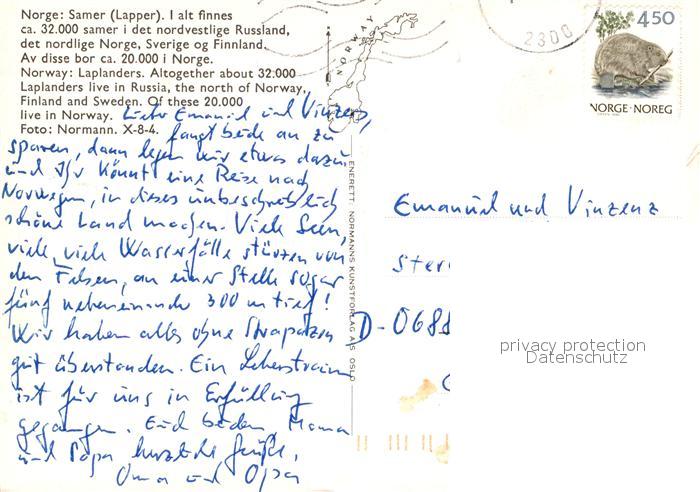 Norge: Samer (Lapper). I alt finnes
ca. 32.000 samer i det nordvestlige Russland,
det nordlige Norge, Sverige og Finnland.
Av disse bor ca. 20.000 i Norge.
Norway: Laplanders. Altogether about 32.000
Laplanders live in Russia, the north of Norway,
Finland and Sweden. Of these 20.000
live in Norway.
Foto: Normann. X-8-4.
Lieber Emanuel und Vinzenz,
fangt beide an zu
sparen, dann legen wir etwas dazu
und Ihr könnt eine Reise nach
Norwegen, in dieses unbeschreiblich
schöne Land machen. Viele Seen,
viele, viele Wasserfälle stürzen von
den Felsen, an einer Stelle sogar
fünf nebeneinander 300 m tief!
Wir haben alles ohne Strapazen
gut überstanden. Ein Lebenstraum
ist für uns in Erfüllung
gegangen. Euch beiden, Mama
und Papa herzliche Grüße,
Oma und Opa
NORWAY
ENERETT: NORMANNS KUNSTFORLAG A/S OSLO
2300
450
NORGE·NOREG
Emanuel und Vinzenz
Ster
D-068
privacy protection
Datenschutz